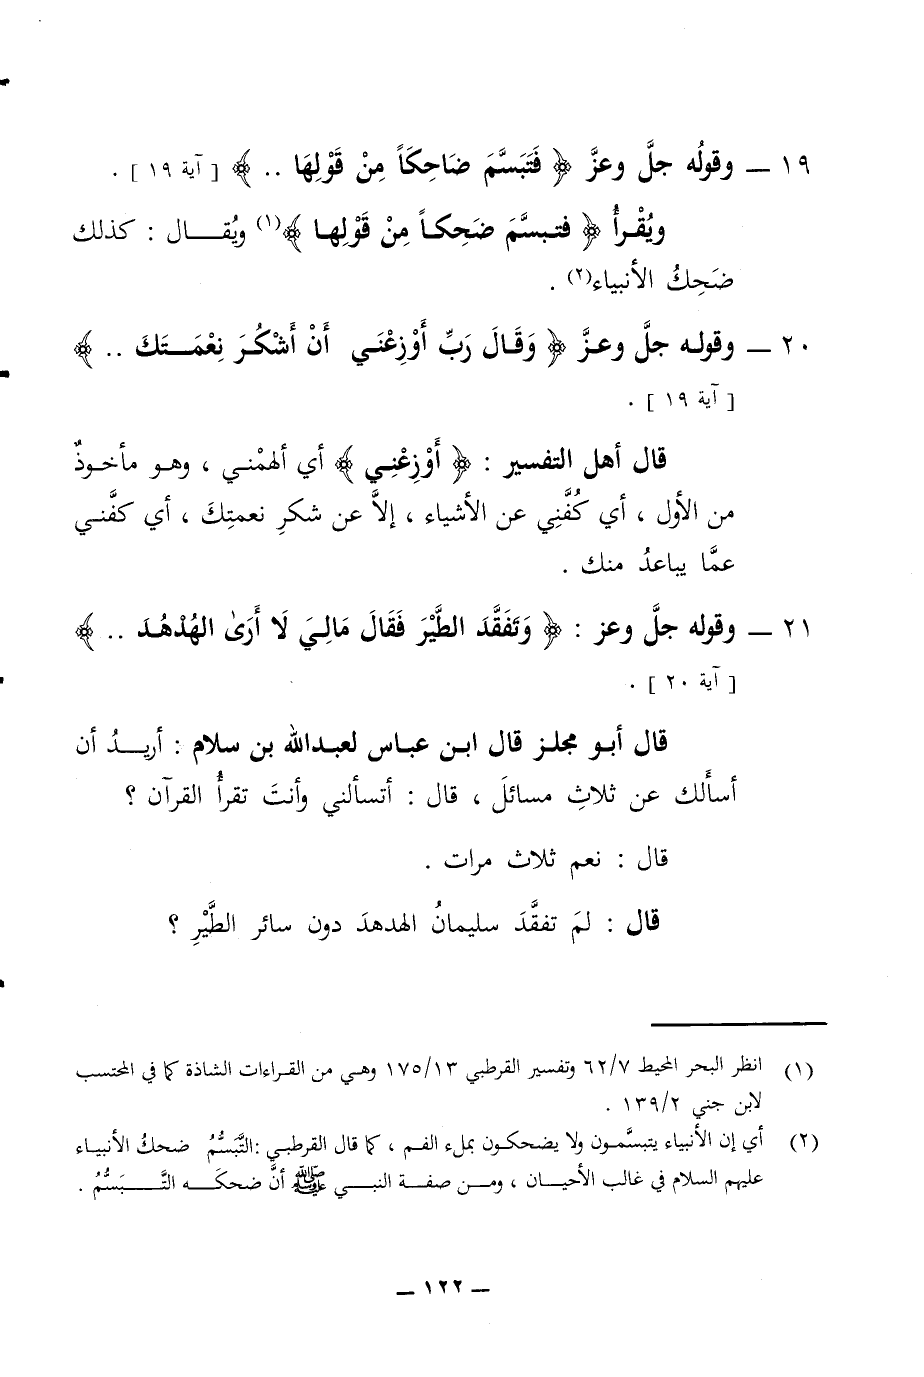 ١٩ ـ وقولُه جلَّ وعزَّ ﴿ فَتَبَسَّمَ ضَاحِكَاً مِنْ قَوْلِهَا .. ﴾ [ آية ١٩ ] .
ويُقْرأُ ﴿ فتبسَّمَ ضَحِكاً مِنْ قَوْلِها ﴾(١) ويُقال : كذلك
ضَحِكُ الأنبياء(٢) .
٢٠ ـ وقوله جلَّ وعزَّ ﴿ وَقَالَ رَبِّ أَوْزِعْنَي أَنْ أَشْكُرَ نِعْمَتَكَ .. ﴾
[ آية ١٩ ] .
قال أهل التفسير : ﴿ أَوْزِعْنِي ﴾ أي ألهمْني ، وهو مأخوذٌ
من الأول ، أي كُفَّنِي عن الأشياء ، إلاَّ عن شكرِ نعمتِكَ ، أي كفَّني
عمَّا يباعدُ منك .
٢١ ـ وقوله جلَّ وعز : ﴿ وَتَفَقَّدَ الطَّيْرَ فَقَالَ مَالِيَ لَا أَرَىٰ الهُدْهُدَ .. ﴾
[ آية ٢٠ ] .
قال أبو مجلز قال ابن عباس لعبدالله بن سلام : أريدُ أن
أسألَك عن ثلاثِ مسائلَ ، قال : أتسألني وأنتَ تقرأُ القرآن ؟
قال : نعم ثلاث مرات .
قال : لمَ تفقَّدَ سليمانُ الهدهدَ دون سائر الطَّيْرِ ؟
(١) انظر البحر المحيط ٦٢/٧ وتفسير القرطبي ١٧٥/١٣ وهي من القراءات الشاذة كما في المحتسب
لابن جني ١٣٩/٢ .
(٢) أي إن الأنبياء يتبسَّمون ولا يضحكون بملء الفم ، كما قال القرطبي :التَّبَسُّمُ ضحكُ الأنبياء
عليهم السلام في غالب الأحيان ، ومن صفة النبي ﷺ أنَّ ضحكَه التَّبَسُّمُ .
ـ ١٢٢ ـ